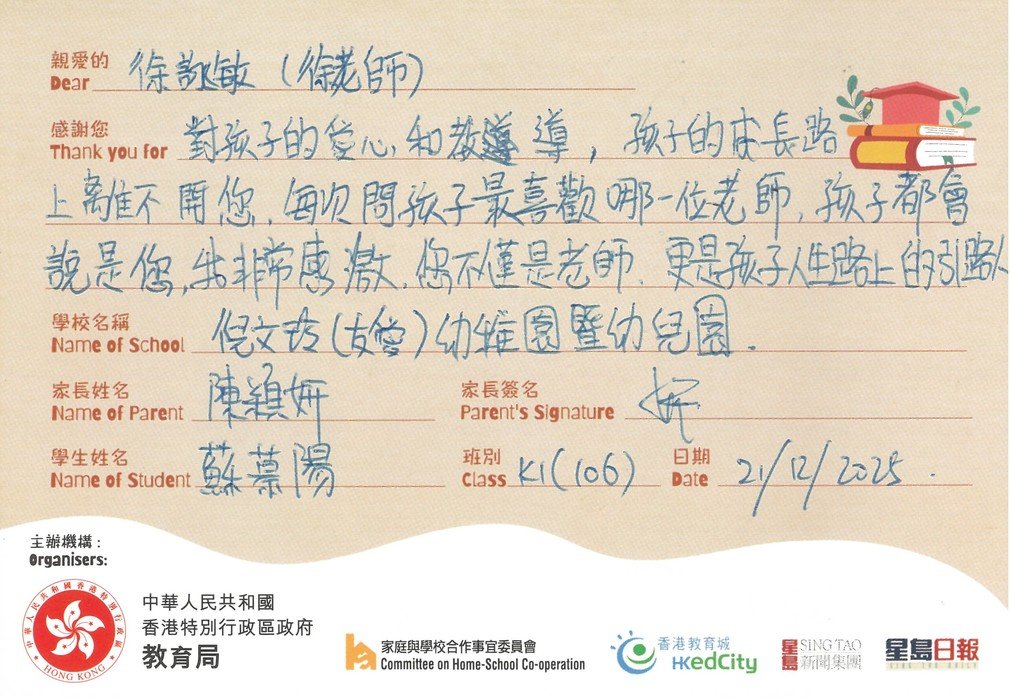 親愛的
Dear 徐詠敏（徐老師）
感謝您
Thank you for 對孩子的愛心，和教導，孩子的成長路
上離不開您，每次問孩子最喜歡哪一位老師，孩子都會
說是您，我非常感激，您不僅是老師，更是孩子人生路上的引路人
學校名稱
Name of School 倪文玲（友愛）幼稚園暨幼兒園．
家長姓名 家長簽名
Name of Parent 陳穎妍 Parent's Signature 妍
學生姓名 班別 日期
Name of Student 蘇慕陽 Class K1（106） Date 21/12/2025．
主辦機構：
Organisers:
中華人民共和國香港特別行政區政府
HONG KONG
中華人民共和國
香港特別行政區政府
教育局
家庭與學校合作事宜委員會
Committee on Home-School Co-operation
香港教育城
HKedCity
星島 SING TAO
新聞集團
星島日報
SING TAO DAILY